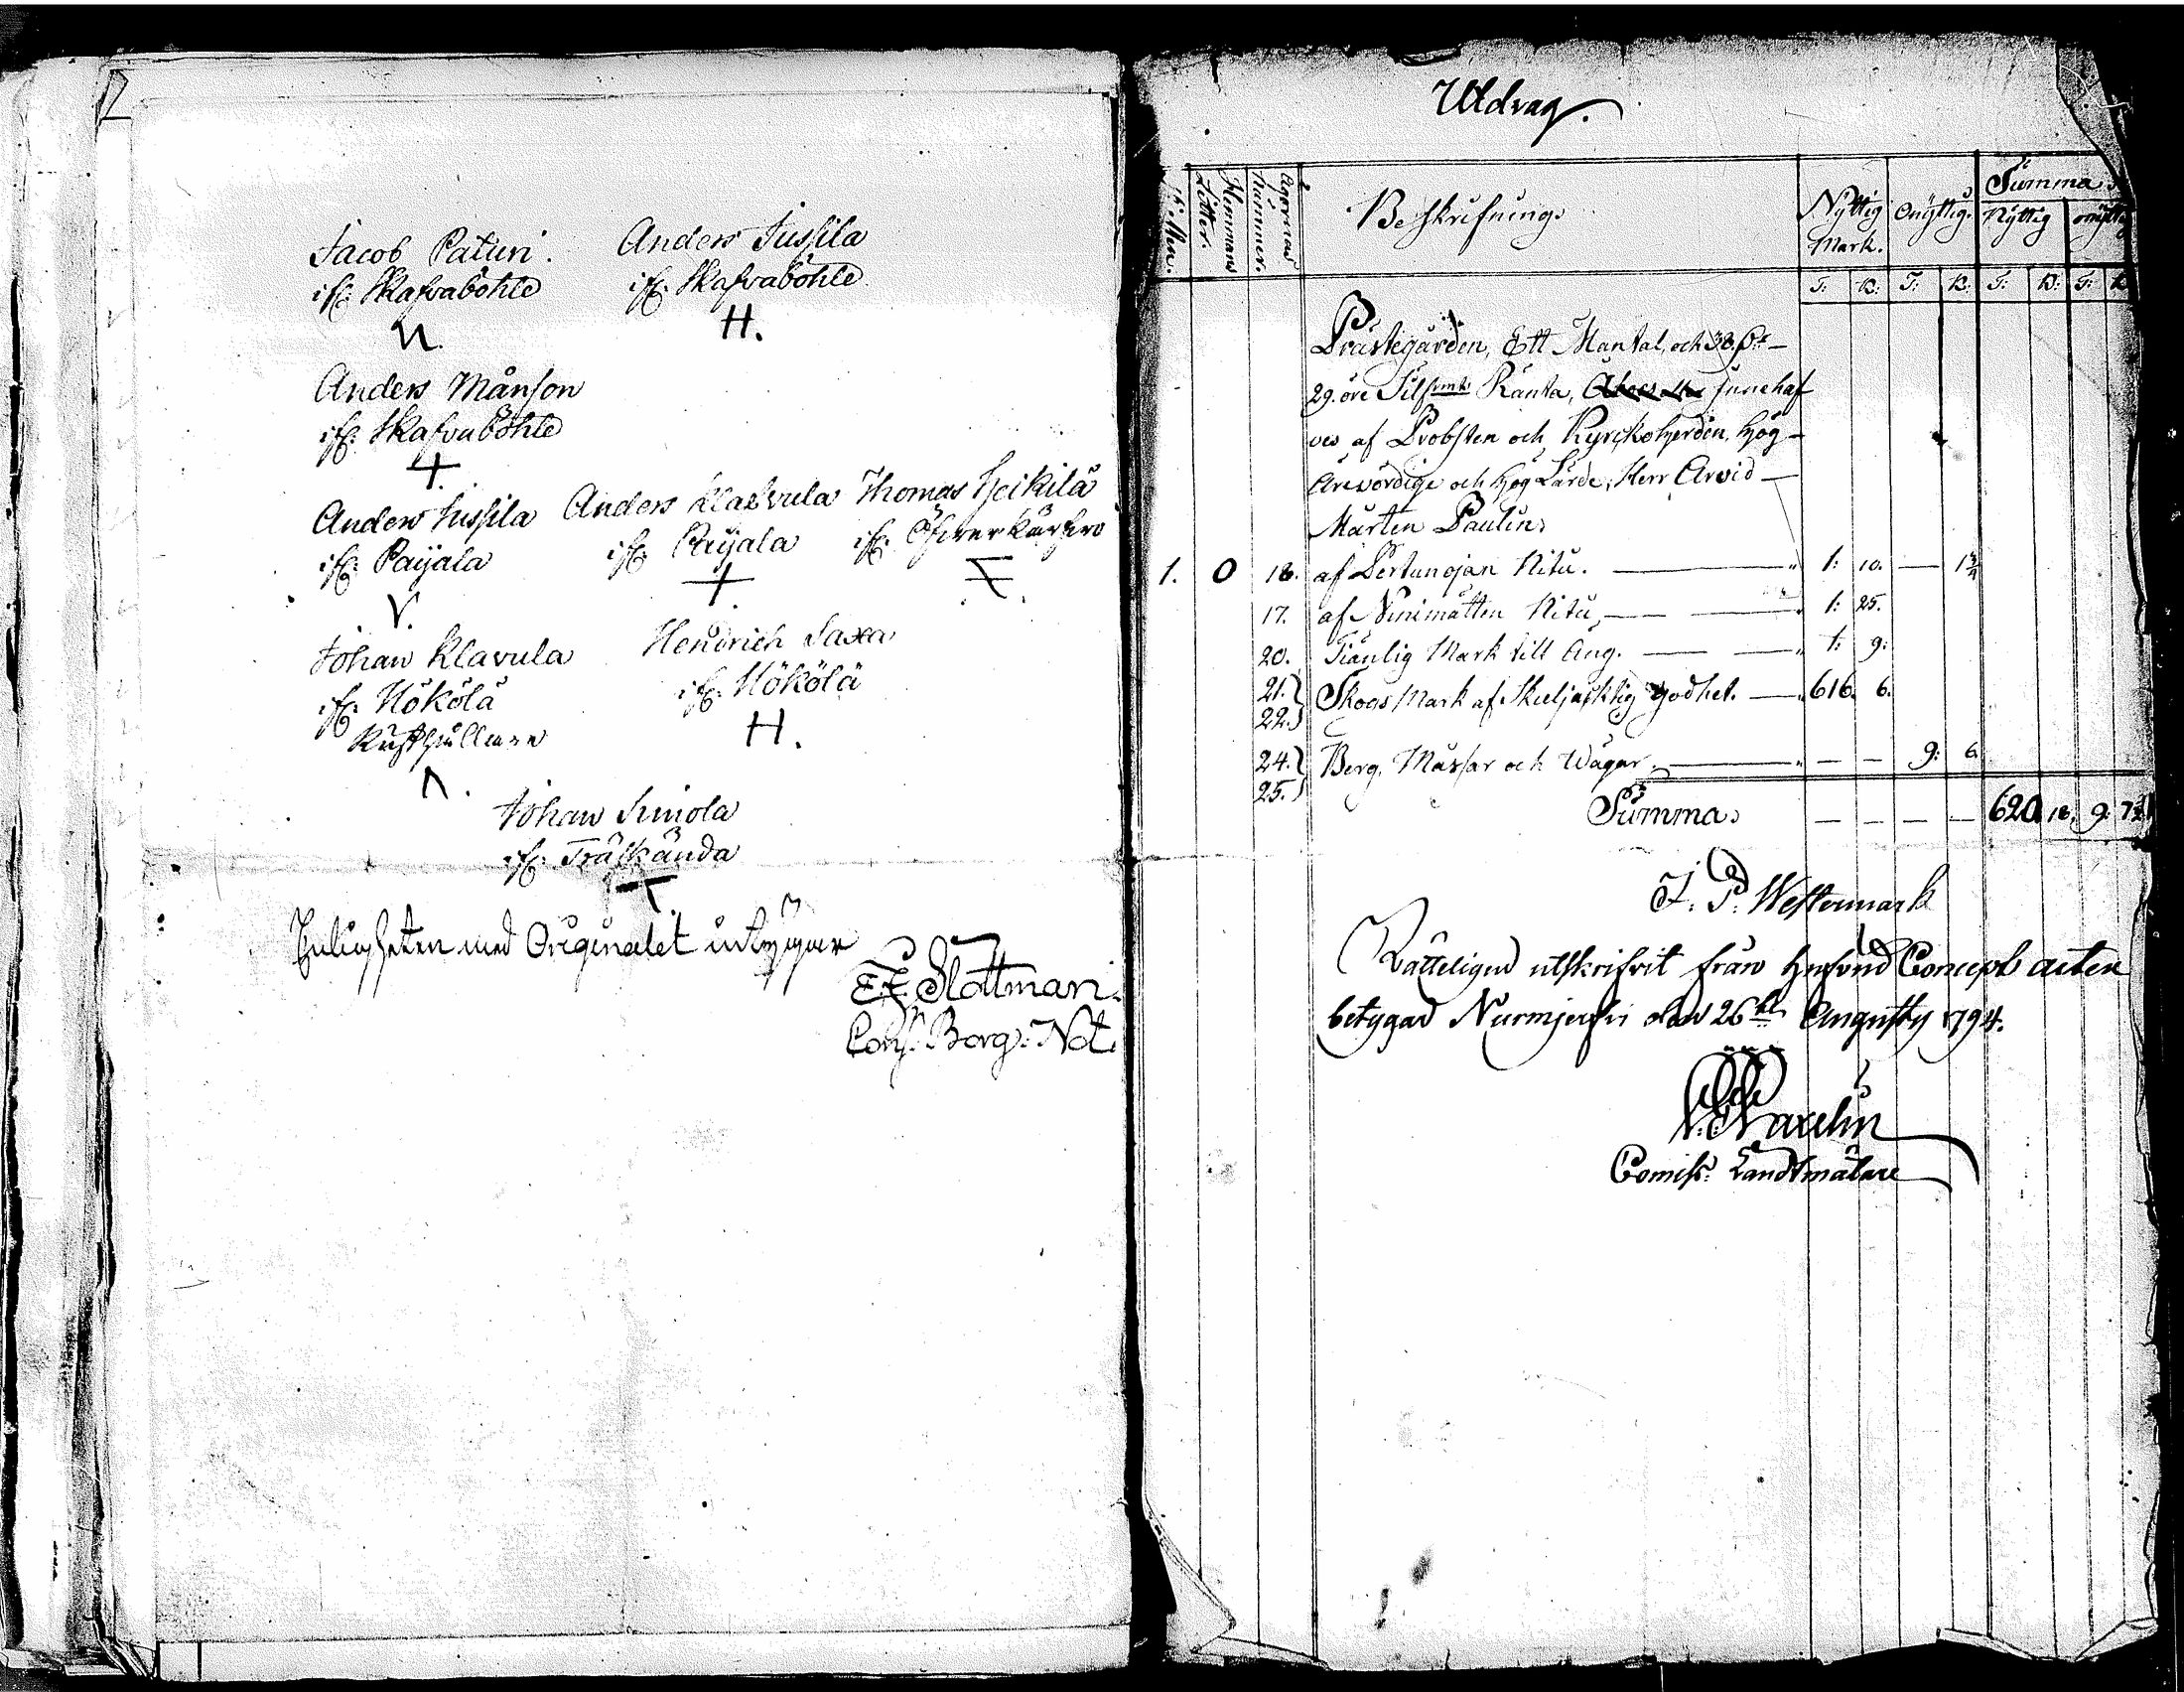 Jacob Paturi.
ifr: Skafvaböhle
Anders Jussila
ifr: Skafvaböhle
H.
Anders Månson
ifr: Skafvaböhle
+
Anders Jussila
ifr: Paijala
V
Anders Klavula
ifr: Paijala
+
Thomas Heikilä
ifr:
Johan Klavula
ifr: Hökölä
Rusthållare
Hendrich Saxa
ifr: Hökölä
H.
Johan Simola
ifr: Träskända
Enligheten med Originalet intygar
E. F. Slottman.
Cons: Borg: Not:
Utdrag.
Hemmans
Lotter.
Ägornas
Nummer.
Beskrifning
Nyttig
Mark.
Onyttig.
Summa
Nyttig
onyttig
T: K: T: K: T: K: T: K
Prästegården, Ett Mantal, och 38
29. öre Silfvmt Ränta, innehaf
ves af Probsten och Kyrckoherden, Hög
Ärevördige och Hög Lärde, Herr Arvid
Mårten Paulin,
1. 0 16. af Pertunojan Nitu. 1: 10. — 1 3/4
17. af Ninimätten Nitu, 1: 25.
20. Tiänlig Mark till Äng. 1: 9:
21. 22. Skogs Mark af Skiljacktig godhet. 616. 6.
24. 25. Berg, Måssar och Vägar. — — 9: 6
Summa. — — — — 620. 18. 9: 7 3/4
J. P. Westermark
Rätteligen utskrifvit från Concept acten
betygar Nurmjerfvi den 26te Augusty 1794.
Comiss: Landtmätare